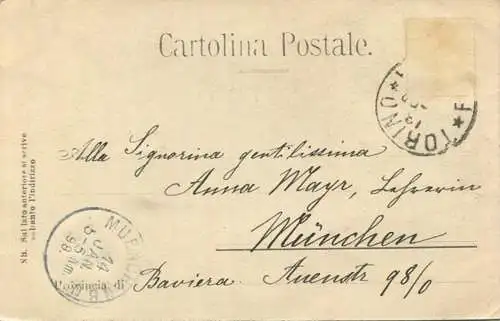 Cartolina Postale.
TORINO
Alla Signorina gentilissima
Anna Mayr, Lehrerin
München
Baviera. Auenstr 98/0
Provincia di
NB. Sul lato anteriore si scrive
soltanto l'indirizzo
MUENCHEN
14
JAN.
98